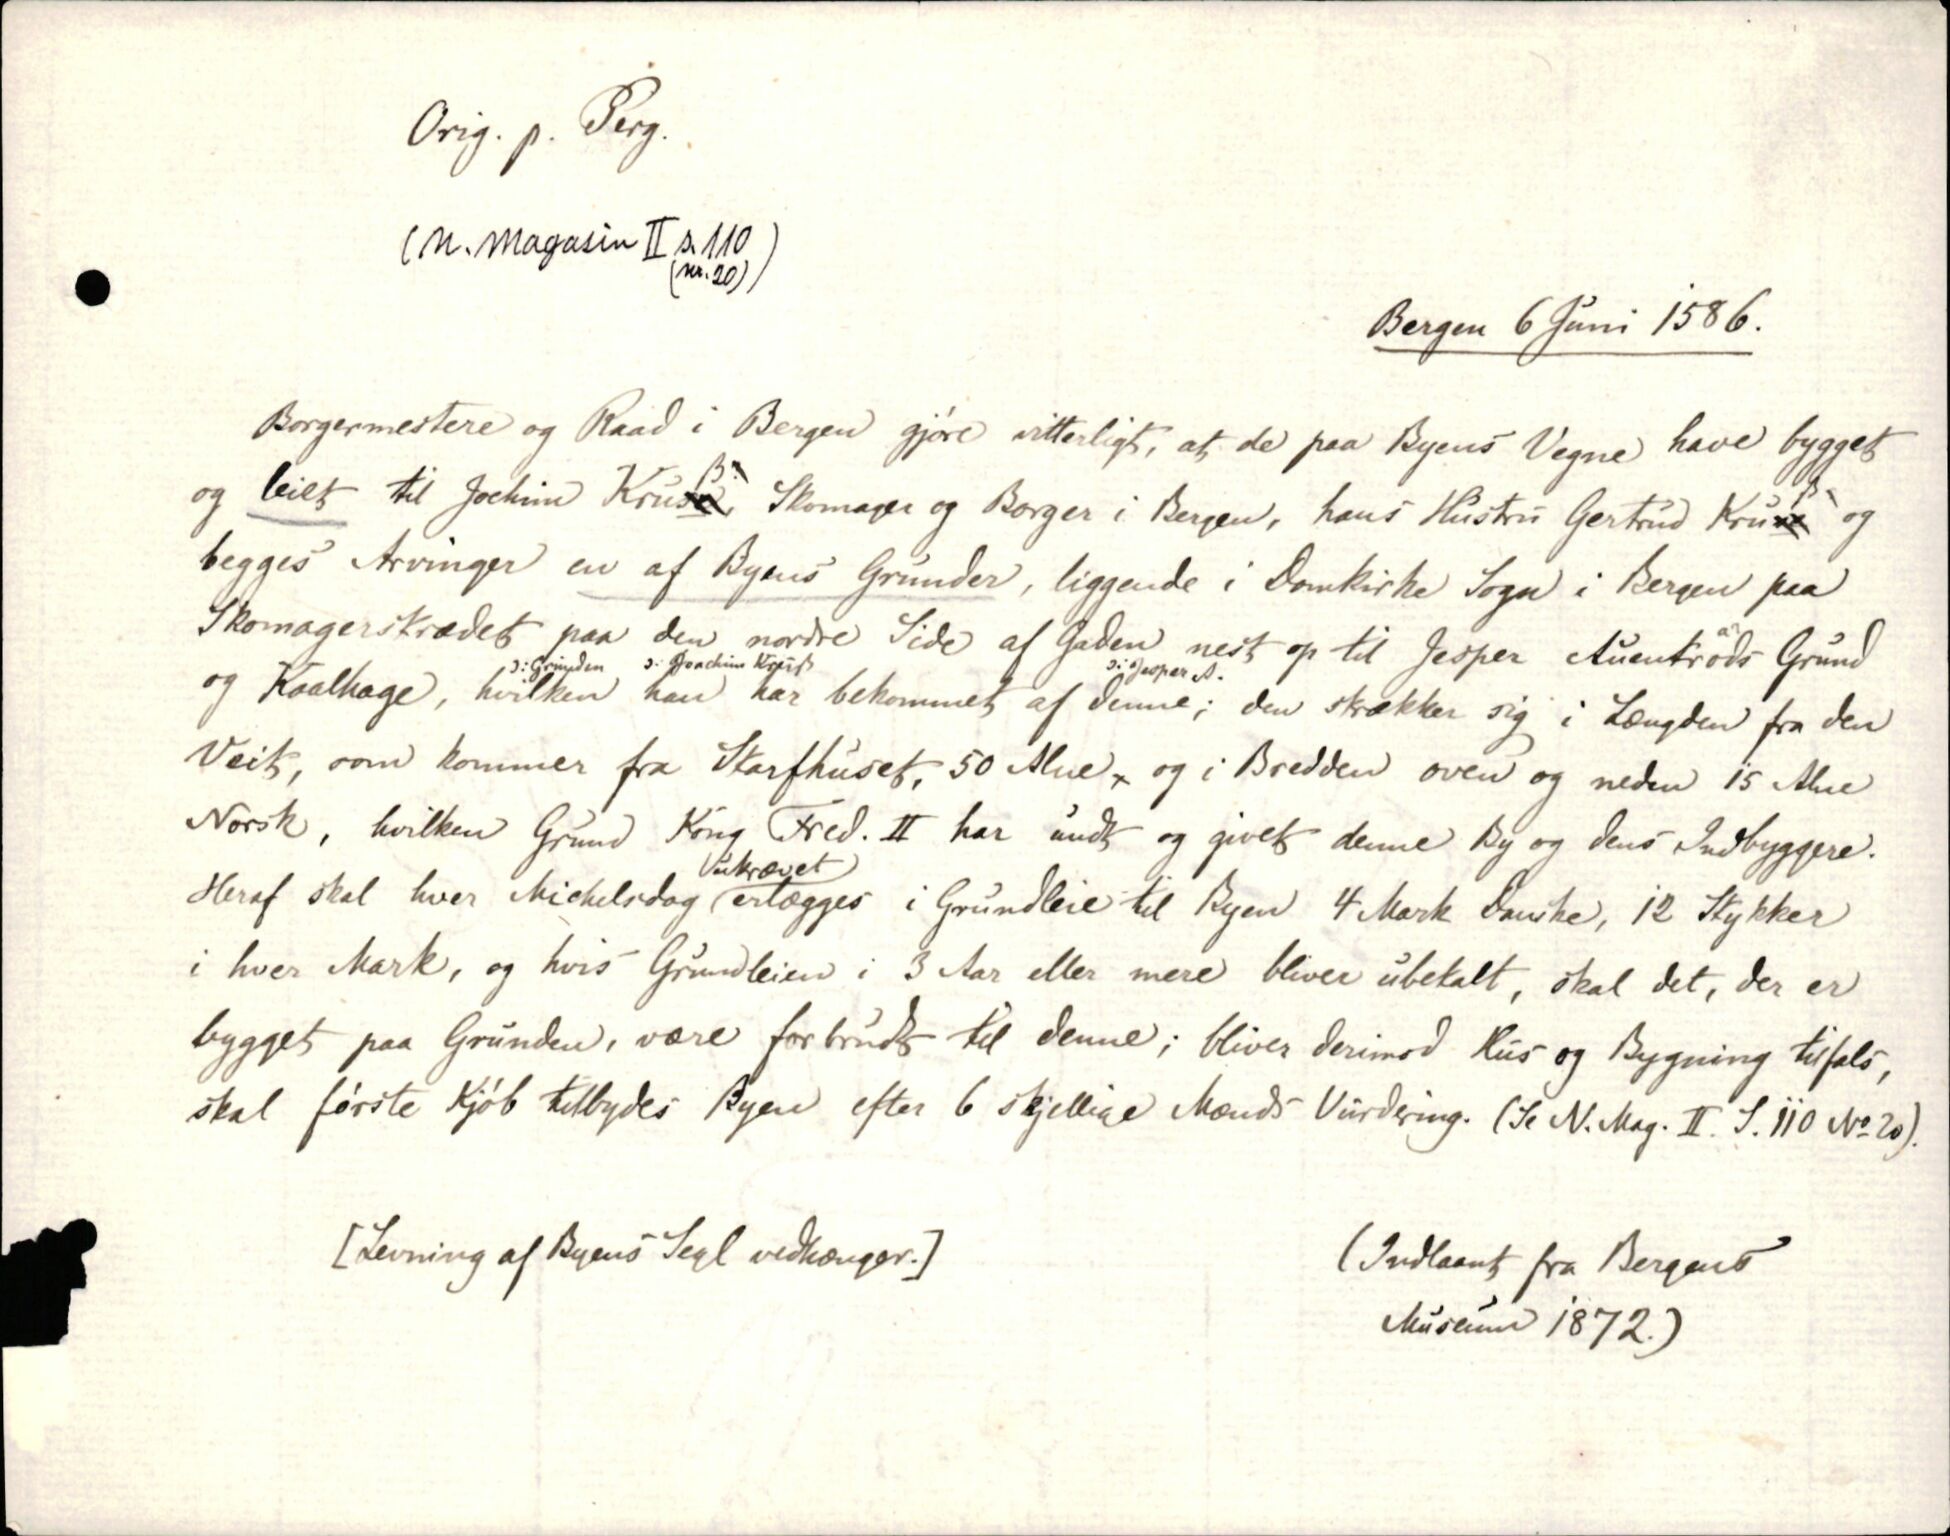 Orig. p. Perg.
(N. Magasin II s. 110
(nr. 20))
Bergen 6 Juni 1586.
Borgermestere og Raad i Bergen gjöre vitterligt, at de paa Byens Vegne have bygget
og leiet til Jochim Kruß, Skomager og Borger i Bergen, hans Hustru Gertrud Kruß og
begges Arvinger en af Byens Grunder, liggende i Domkirke Sogn i Bergen paa
Skomagerstrædet paa den nordre Side af Gaden nest op til Jesper Auentrods Grund
ɔ: Grunden ɔ: Joachim Kruß ɔ: Jesper A.
og Kaalhage, hvilken han har bekommet af denne; den strækker sig i Længden fra den
Veit, som kommer fra Starfhuset, 50 Alne, og i Bredden oven og neden 15 Alne
Norsk, hvilken Grund Kong Fred. II har undt og givet denne By og dens Indbyggere.
Uukrævet
Heraf skal hver Michelsdag erlægges i Grundleie til Byen 4 Mark Danske, 12 Stykker
i hver Mark, og hvis Grundleien i 3 Aar eller mere bliver ubetalt, skal det, der er
bygget paa Grunden, være forbrudt til denne; bliver derimod Hus og Bygning tilfals,
skal förste Kjöb tilbydes Byen efter 6 skjellige Mænds Vurdering. (Se N. Mag. II. S. 110 No 20).
[Levning af Byens Segl vedhænger.]
(Indlaant fra Bergens
Museum 1872.)